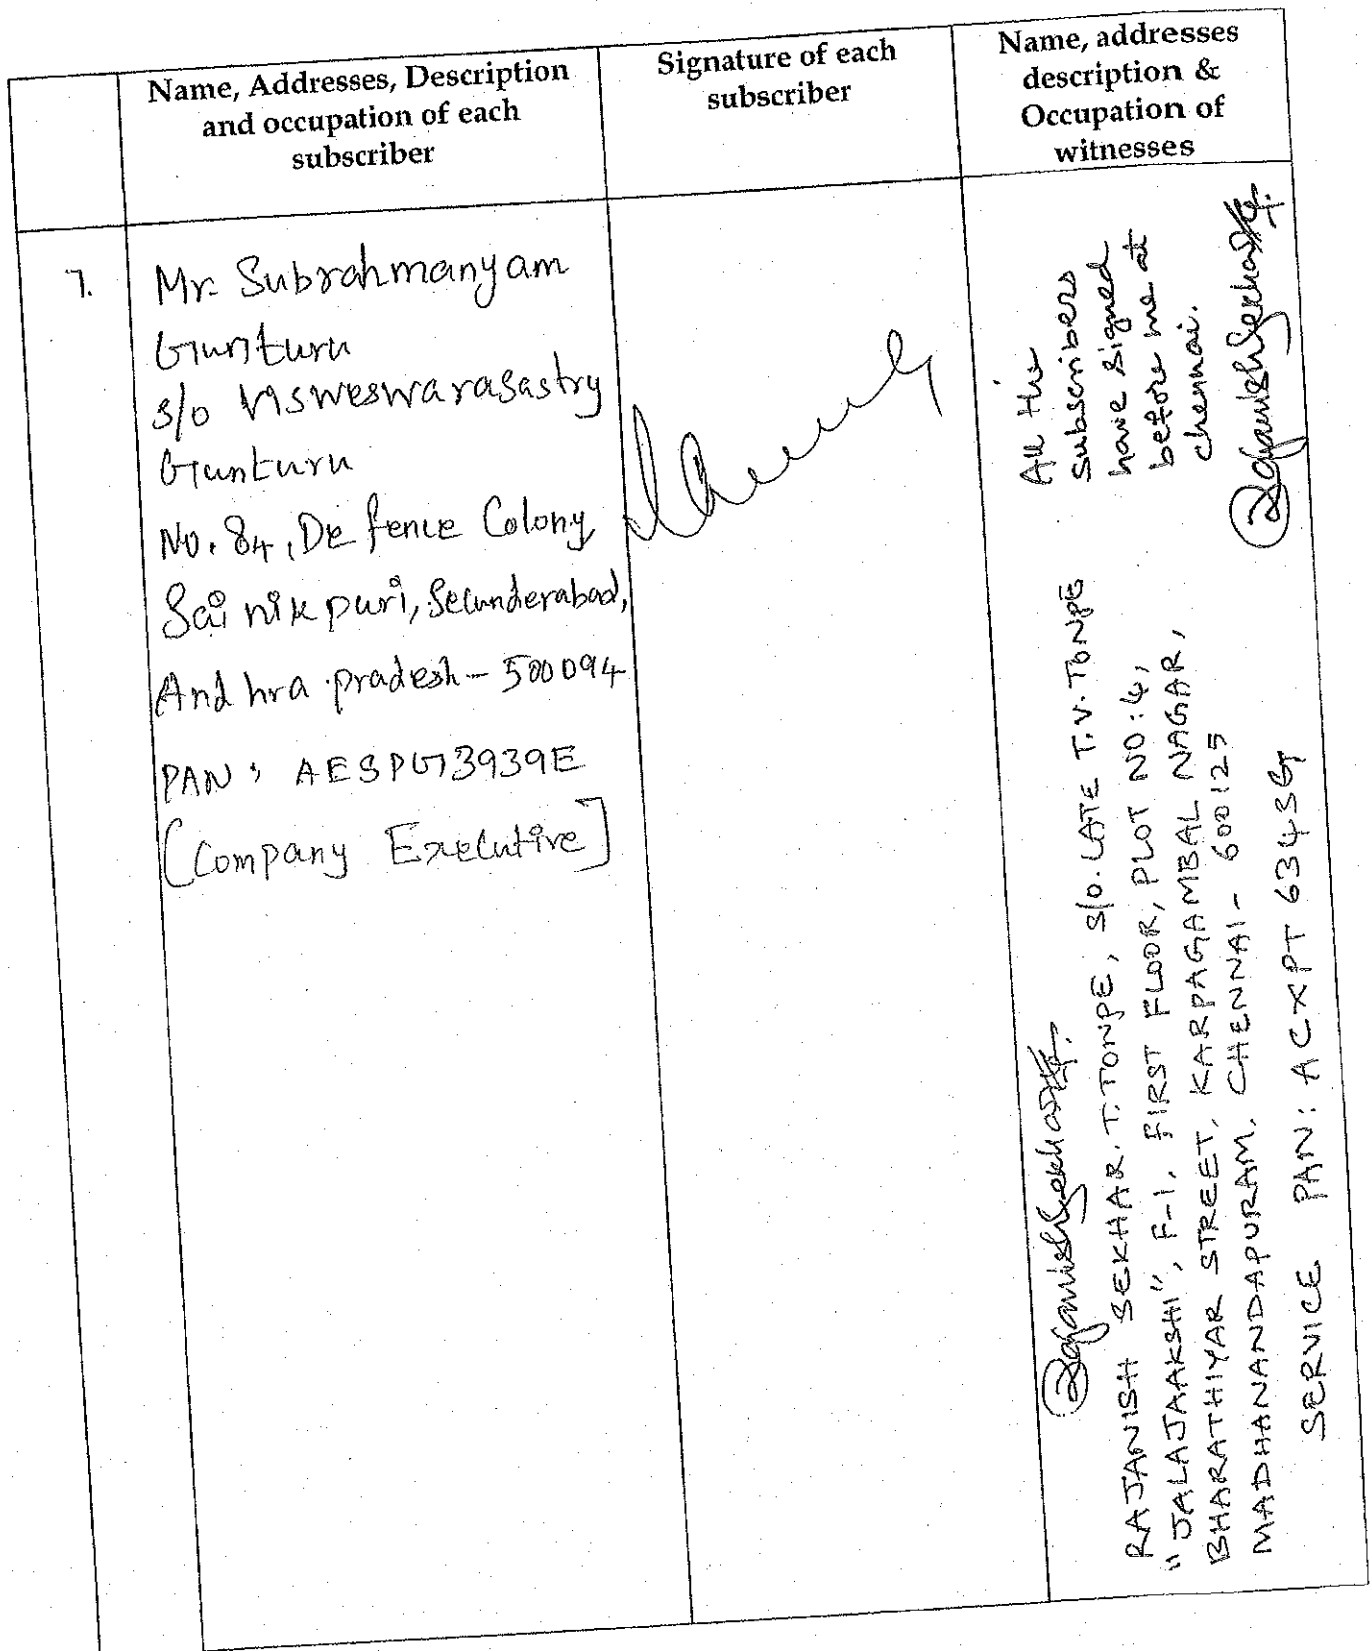 Name, Addresses, Description
and occupation of each
subscriber
Signature of each
subscriber
Name, addresses
description &
Occupation of
witnesses
7.
Mr. Subrahmanyam
Gunturu
S/o Visweswarasastry
Gunturu
No. 84, Defence Colony
Sainikpuri, Secunderabad,
Andhra pradesh - 500094
PAN: AESPG3939E
[Company Executive]
All the
subscribers
have signed
before me at
chennai.
RajanishSekhar
RajanishSekhar
RAJANISH SEKHAR. T. TONPE, S/o. LATE T.V. TONPE
"JALAJAAKSHI", F-1, FIRST FLOOR, PLOT NO: 4,
BHARATHIYAR STREET, KARPAGAMBAL NAGAR,
MADHANANDAPURAM, CHENNAI - 600125
SERVICE PAN: ACXPT 6343G